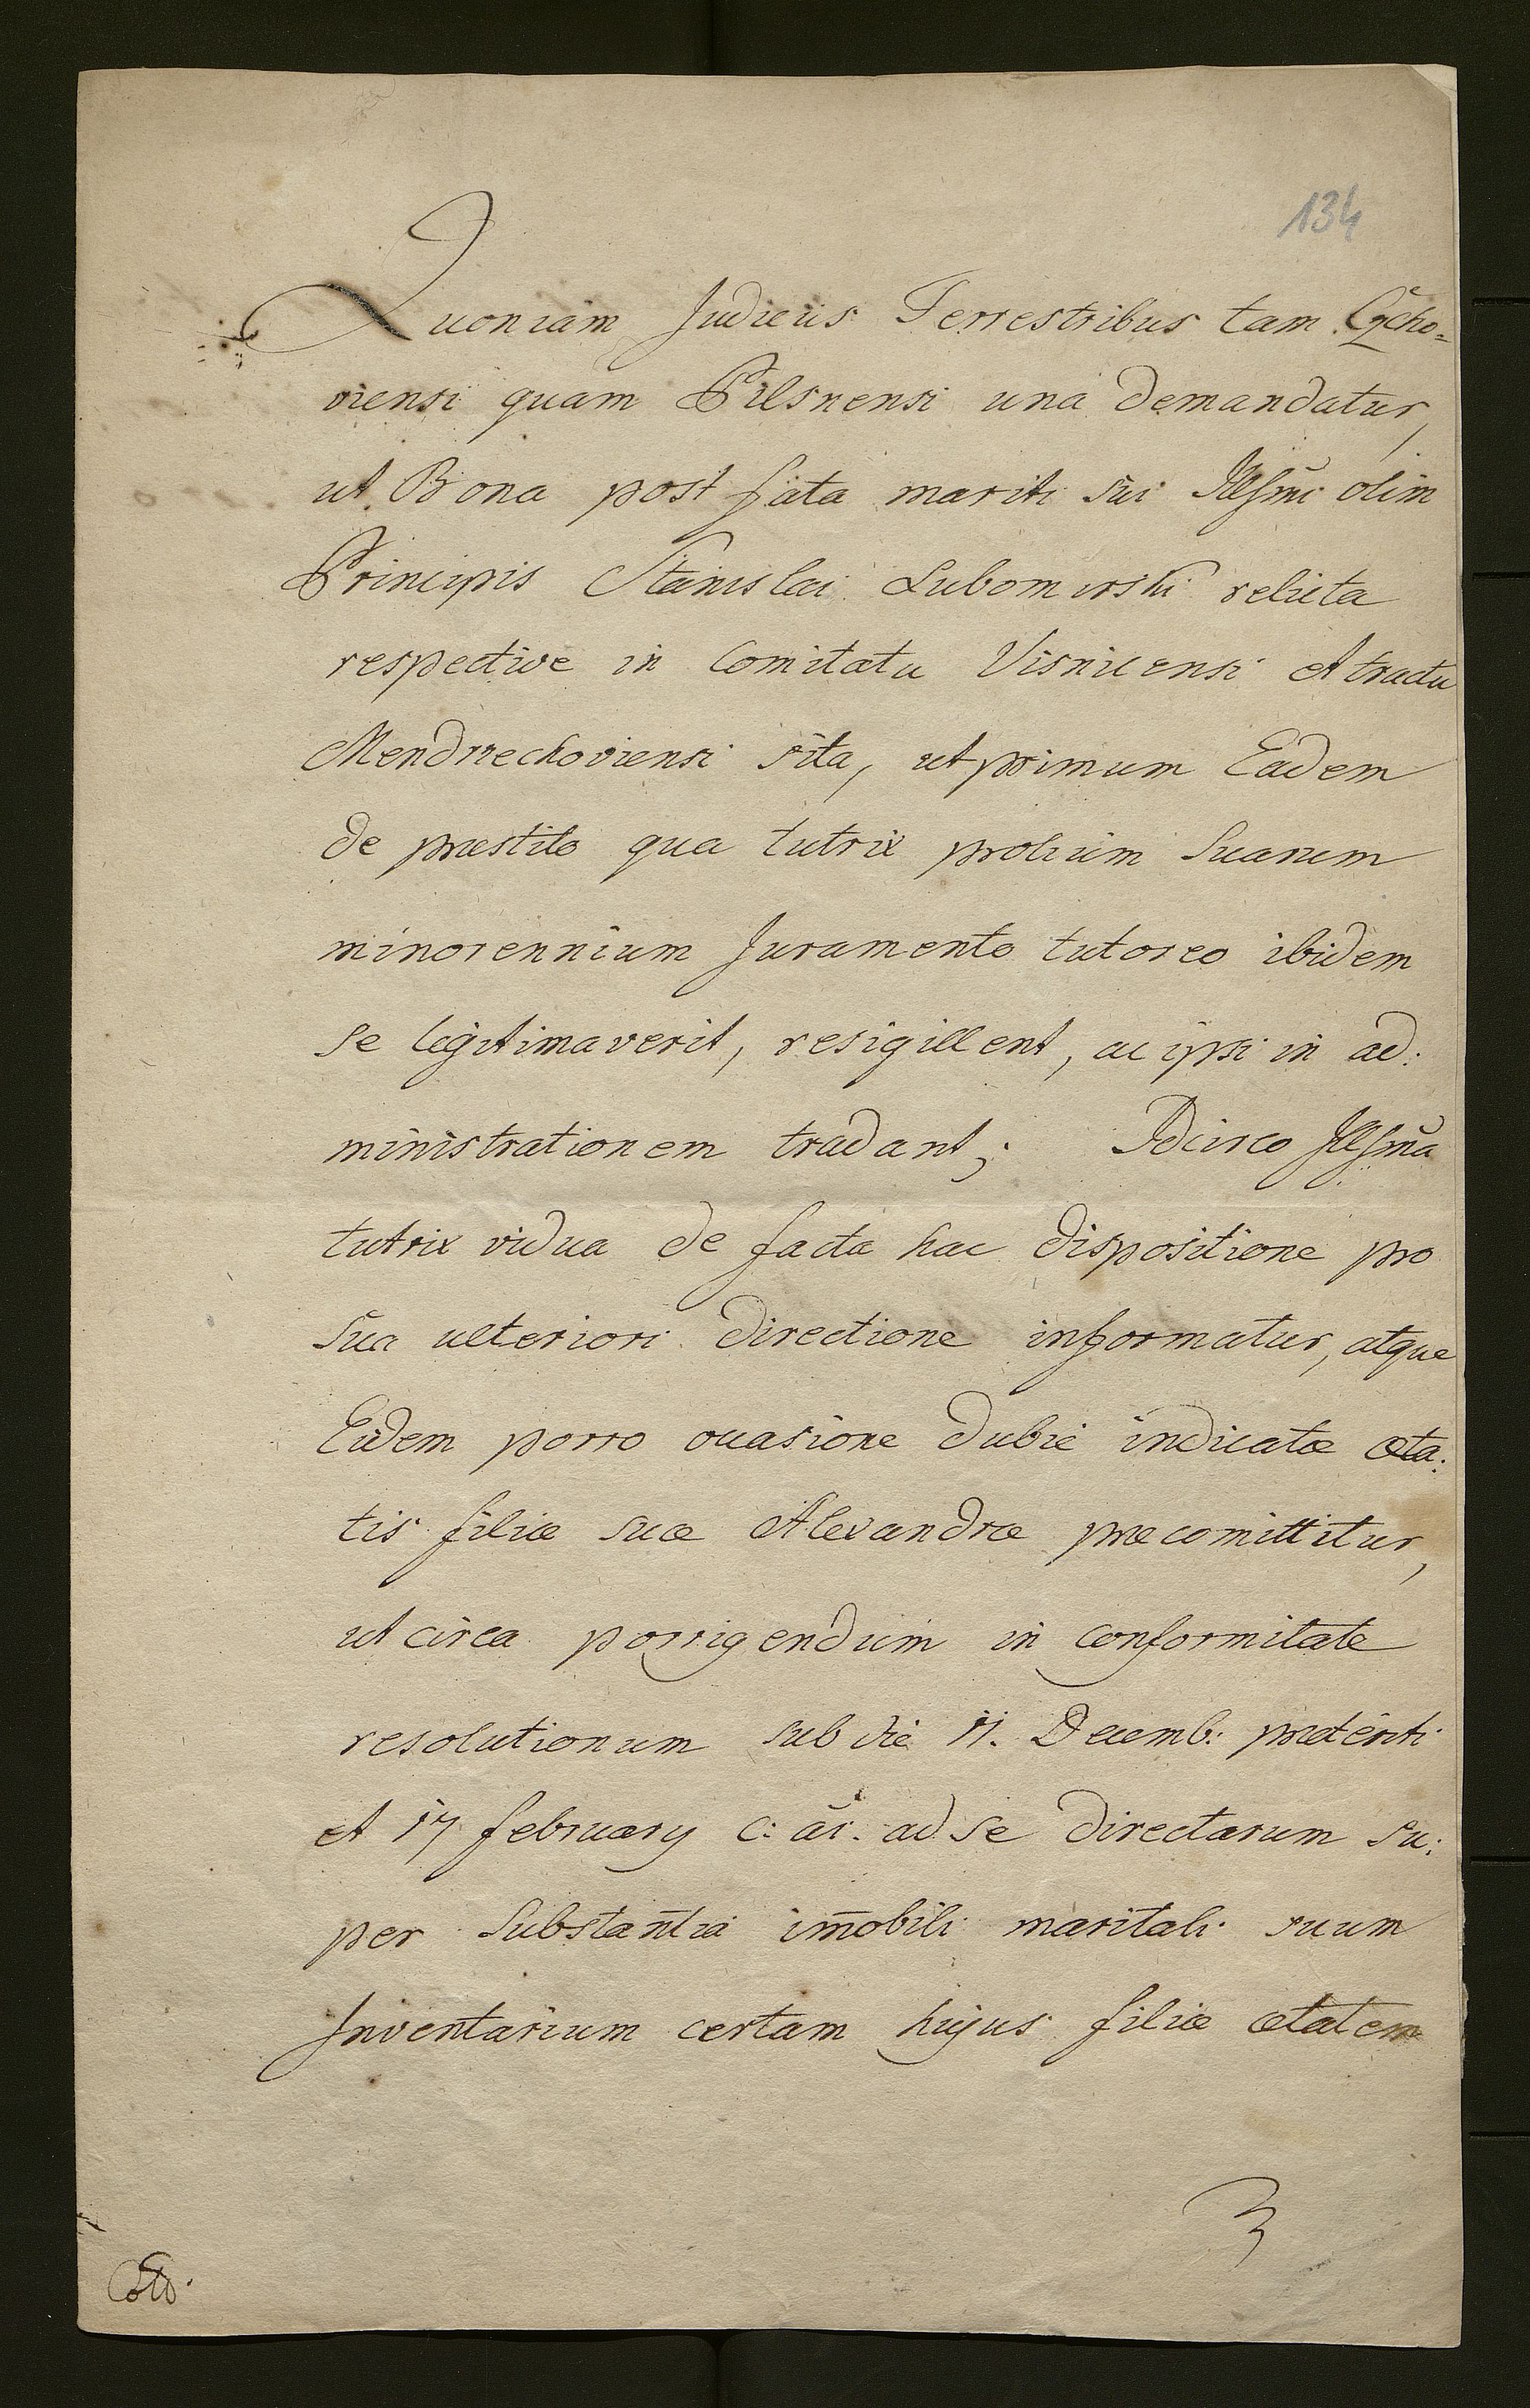 134
Quoniam Judiciis Terrestribus tam Czcho=
viensi quam Pilsnensi una demandatur,
ut Bona post fata mariti sui Illsm̄i olim
Principis Stanislai Lubomirski relicta
respective in Comitatu Visnicensi et tractu
Mendrzechoviensi sita, ut primum Eadem
de præstito qua tutrix prolium Suarum
minorennium Juramento tutoreo ibidem
se legitimaverit, resigillent, ac ipsi in ad:
ministrationem tradant; Idcirco Illsm̄a
tutrix vidua de facta hac dispositione pro
sua ulteriori directione informatur, atque
Eidem porro occasione dubie indicatæ æta:
tis filiæ suæ Alexandræ præcomittitur,
ut circa porrigendum in conformitate
resolutionum sub die 11. Decemb: præteriti
et 17 february c: ai. ad se directarum su:
per Substantia im̄obili maritali suum
Inventarium certam hujus filiæ ætatem